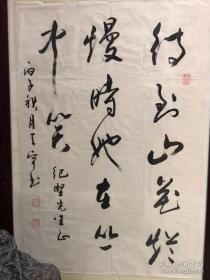 待到山花烂
熳时她在丛
中笑
先生正
丙子秋月